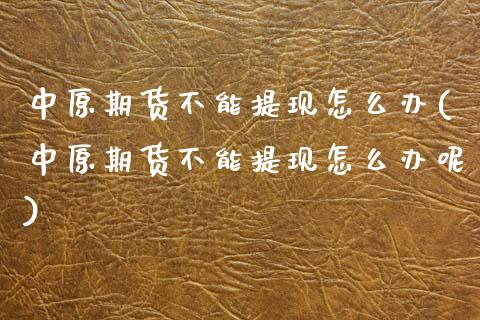 中原期货不能提现怎么办(
中原期货不能提现怎么办呢
)